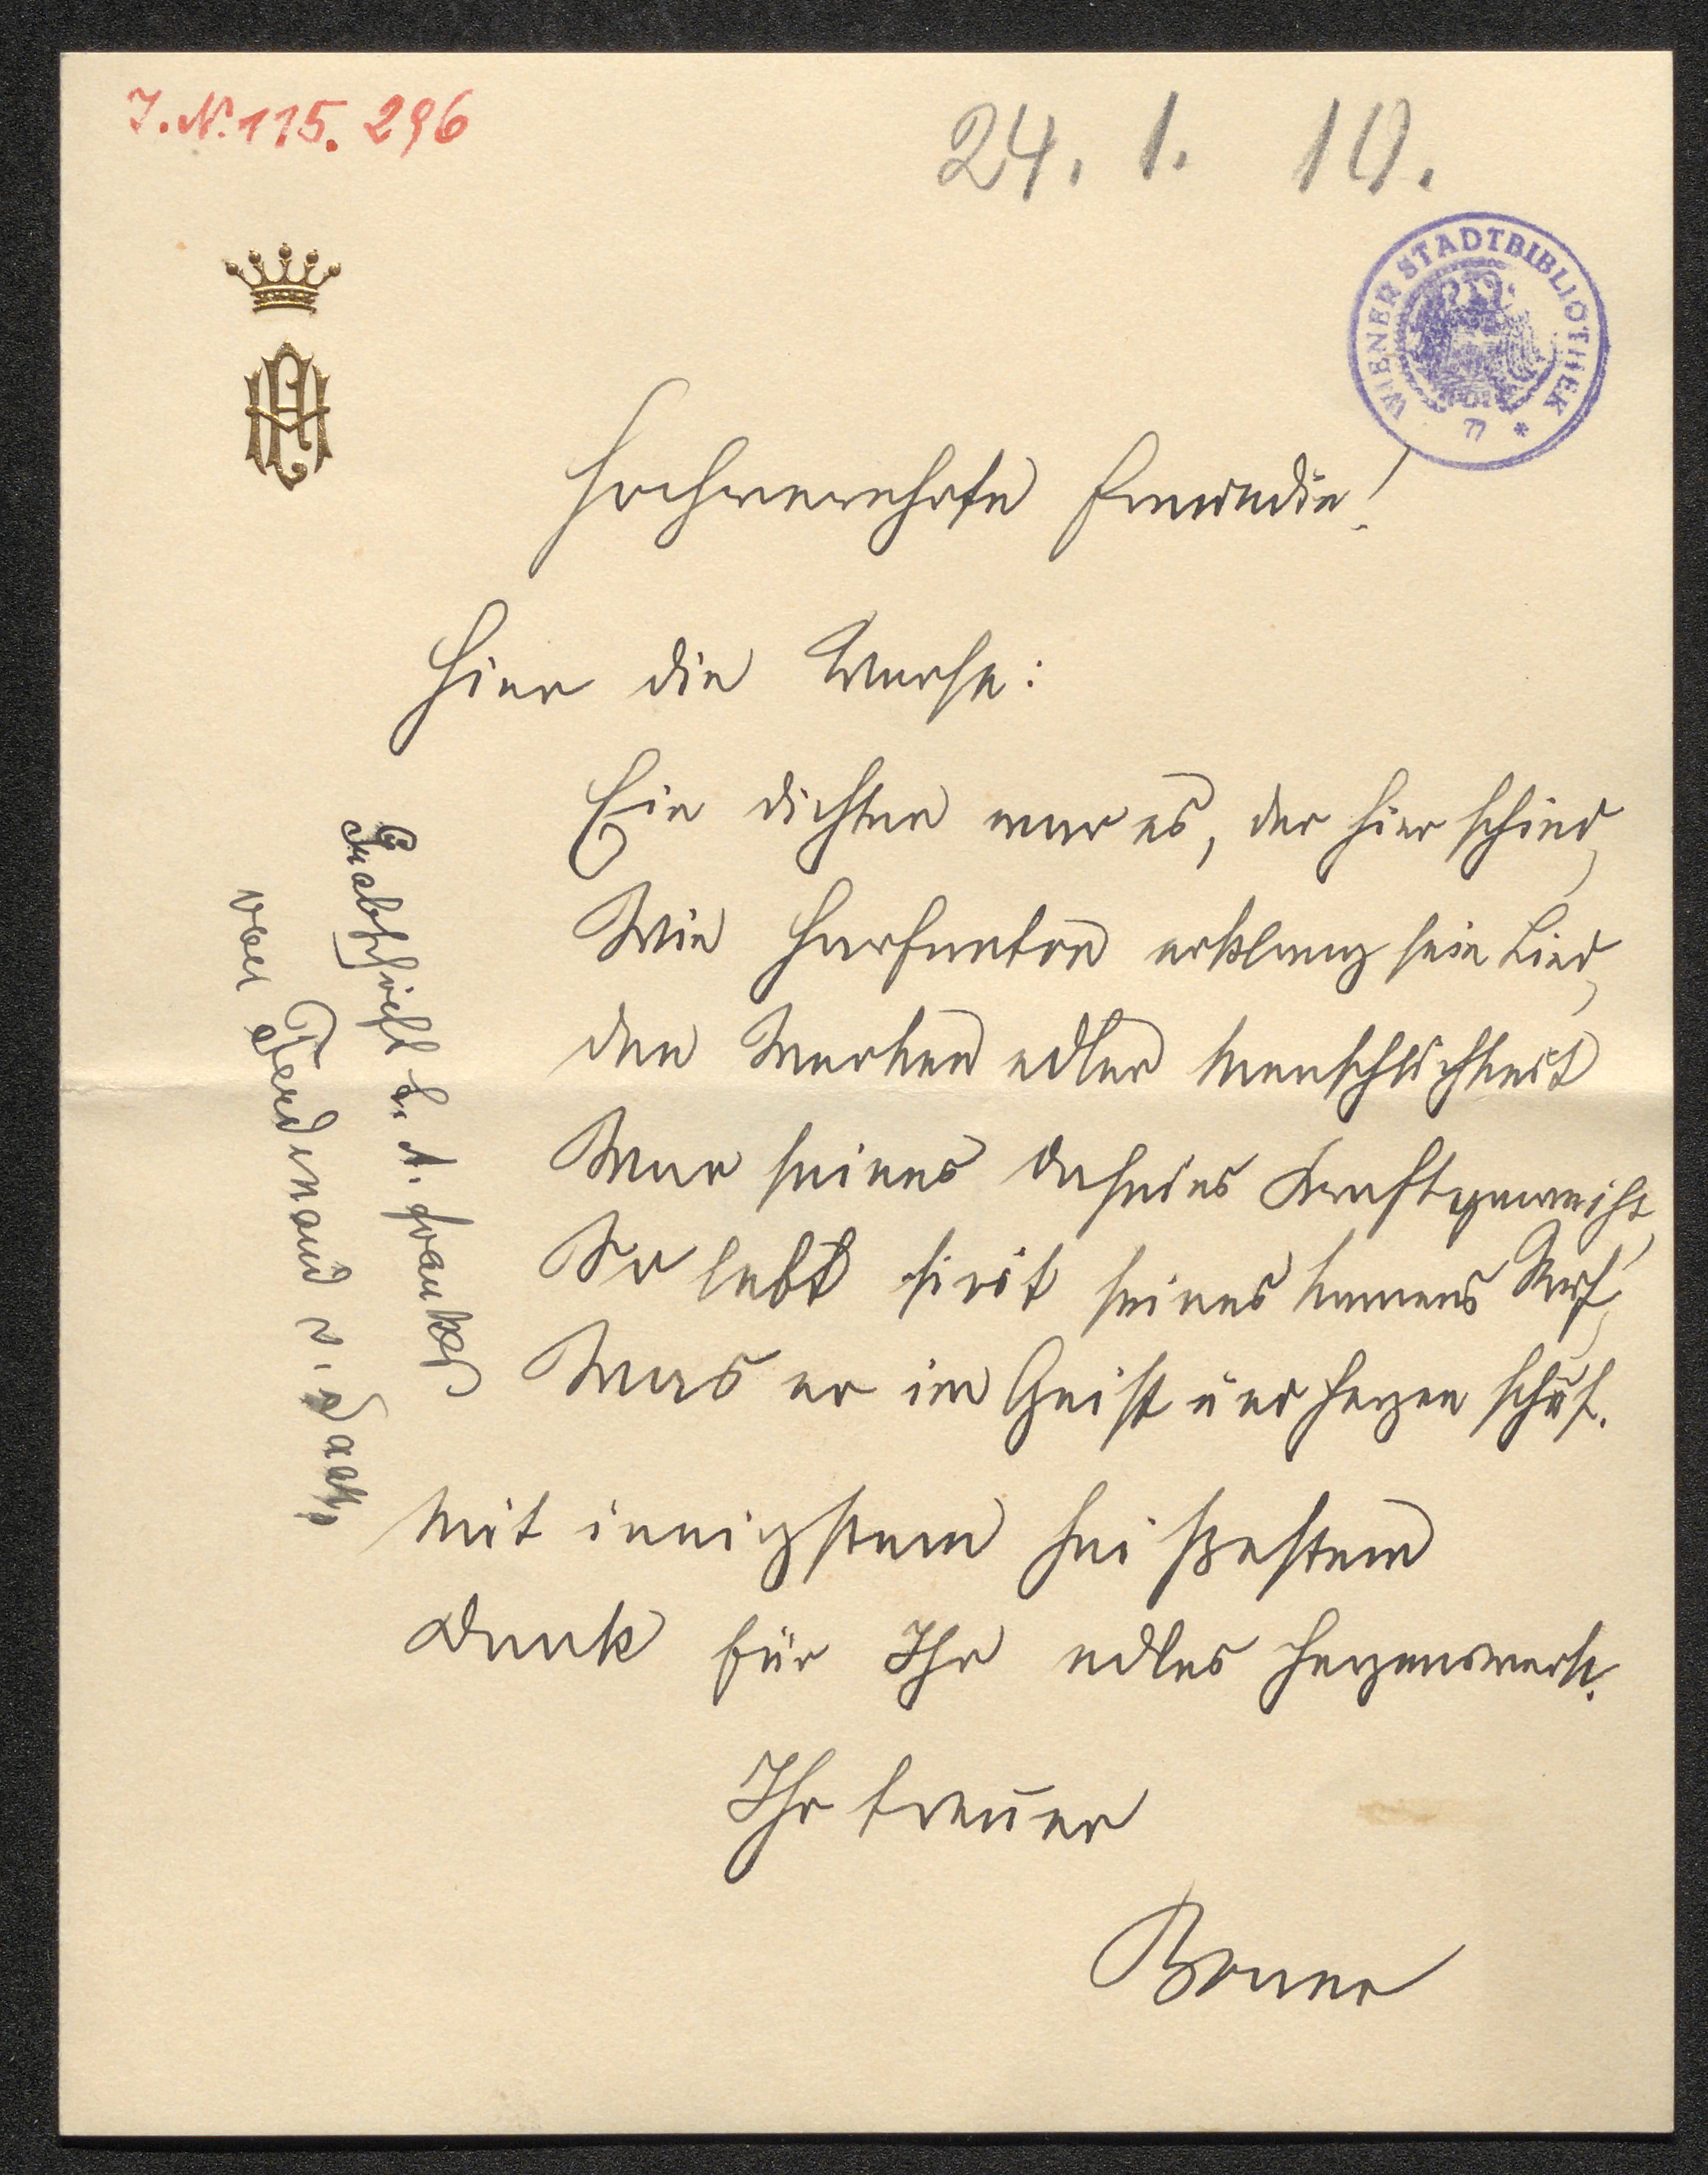 J.N. 115.296
24. 1. 10.
WIENER STADTBIBLIOTHEK
77 *
Hochverehrte Freundin!
Hier die Verse:
Ein Dichter war es, der hier schied,
Wie Harfenton erklang sein Lied,
Den Werken edler Menschlichkeit
War seines Daseins Kraft geweiht,
So lebt mit seines Namens Ruf,
Was er im Geist und Herzen schuf.
Mit innigstem heißestem
Dank für Ihr edles Herzenswerk.
Ihr treuer
Grabschrift L. A. Frankls
von Ferdinand v. Saar,